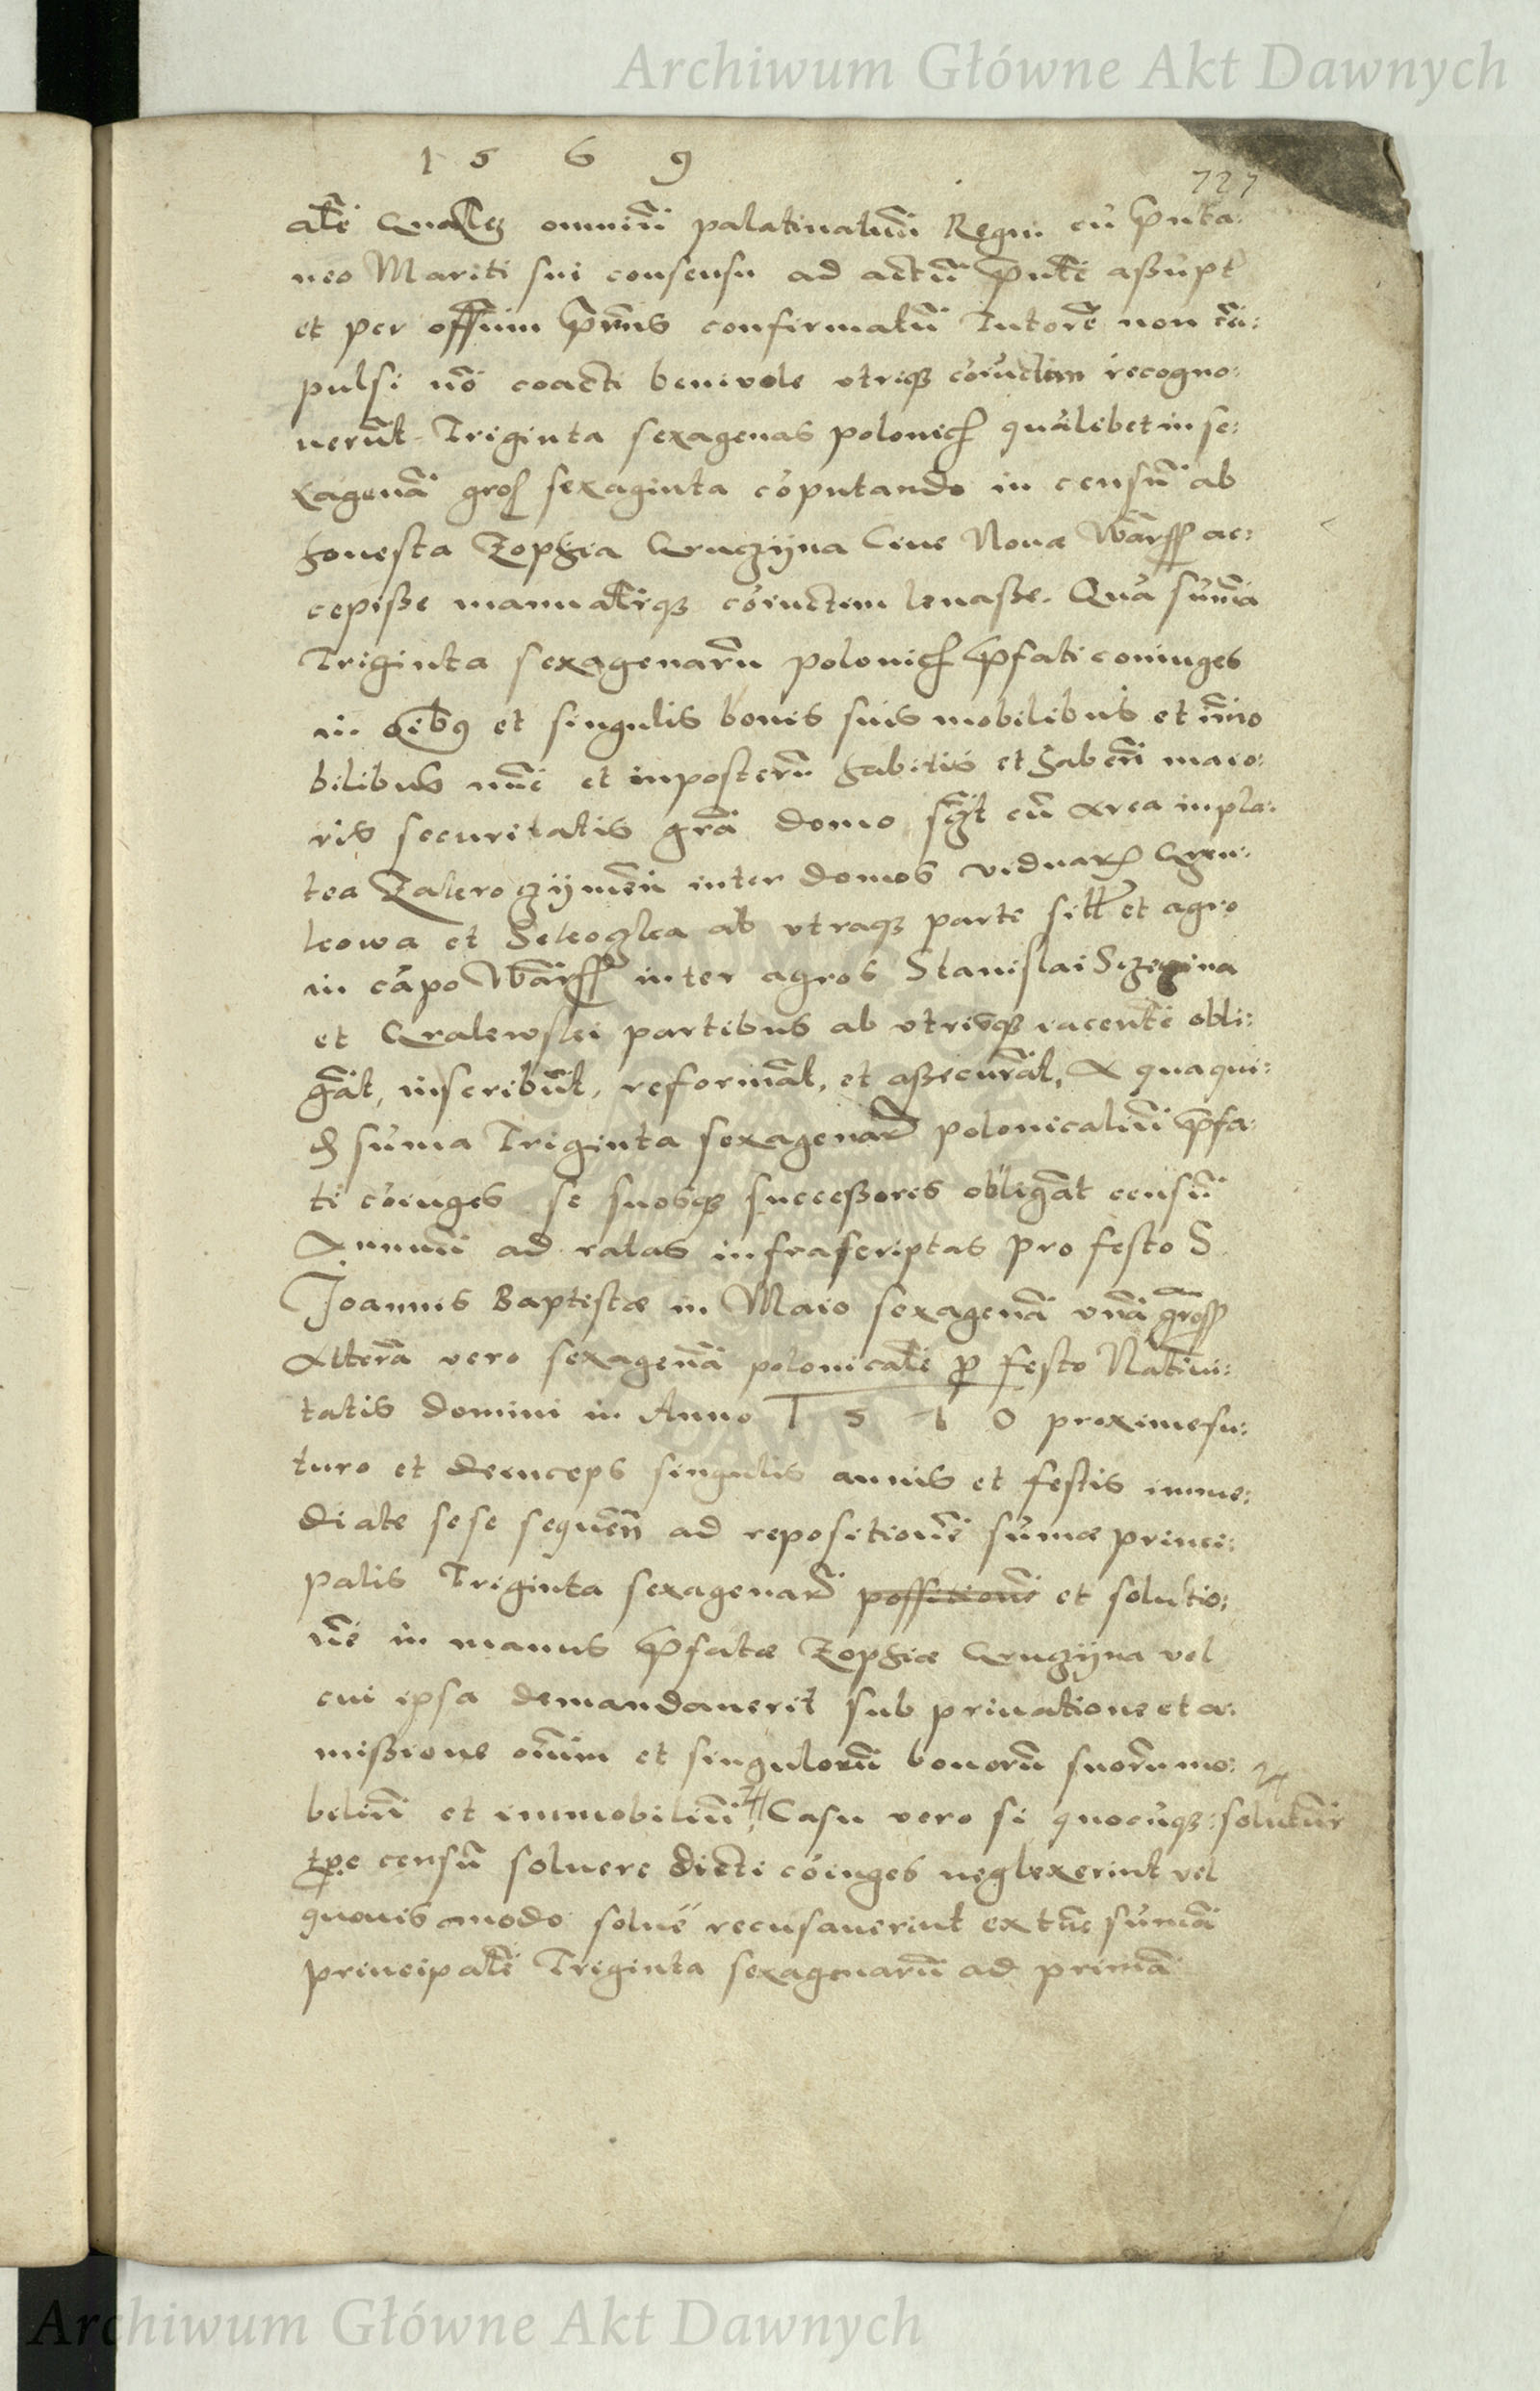 Archiwum Główne Akt Dawnych
1 5 6 9
727
omniũ palatinatuũ Regni cũ p̃nta:
neo Mariti sui consensu ad actũ p̃nte assũpt
et per offium p̃ns confirmatũ Tutorẽ non cõ:
pulsi nõ coacti benivole utriqꝫ cõiuctim recogno:
uerũt Triginta sexagenas polonich quãlibet in se:
xagenã gros sexaginta cõputando in censũ ab
honesta Zophia Gruczÿna Cive Novæ Warss ac:
cepisse manualrqꝫ cõiunctim levasse. Qua sũma
Triginta sexagenarũ polonich p̃fati coniuges
in oĩbꝰ et singulis bonis suis mobilibus et im̃o
bilibus nũc et inposterũ habitis et habeñ maio:
ris securitatis grã domo sc̃t cũ Area in pla:
tea inter domos viduarꝫ
et ab utraqꝫ parte sitt et agro
in cãpo Warss inter agros Stanislai
et Gralewski partibus ab utrisqꝫ iacentẽ obli:
gãt, inscribũt, reformãt, et assecurãt, A qua qui:
dẽ sũma Triginta sexagenarꝫ polonicaliũ p̃fa:
ti cõiuges se suosqꝫ successores obligãt censũ
Annuũ ad ratas infrascriptas pro festo S
Joannis Baptistæ in Maio sexagenã unã gross
Alterã vero sexagenã polonicalẽ ꝑ festo Nativi:
tatis domini in Anno 1 5 7 0 proxime fu:
turo et deinceps singulis annis et festis imme:
diate sese sequeñ ad repositionẽ sũmæ princi:
palis Triginta sexagenarꝫ possitionẽ et solutio:
nẽ in manus p̃fatæ Zophiæ Gruczÿna vel
cui ipsa demandaverit sub privatione et a:
missione oĩm et singulorũ bonorũ suorũ mo:
biliũ et immobiliũ # Casu vero si quocũqꝫ: # solutur
tp̃e censũ soluere dicti cõiuges neglexerint vel
quouis modo soluẽ recusauerint ex tũc sũmã
principalẽ Triginta sexagenarũ ad primã
Archiwum Główne Akt Dawnych